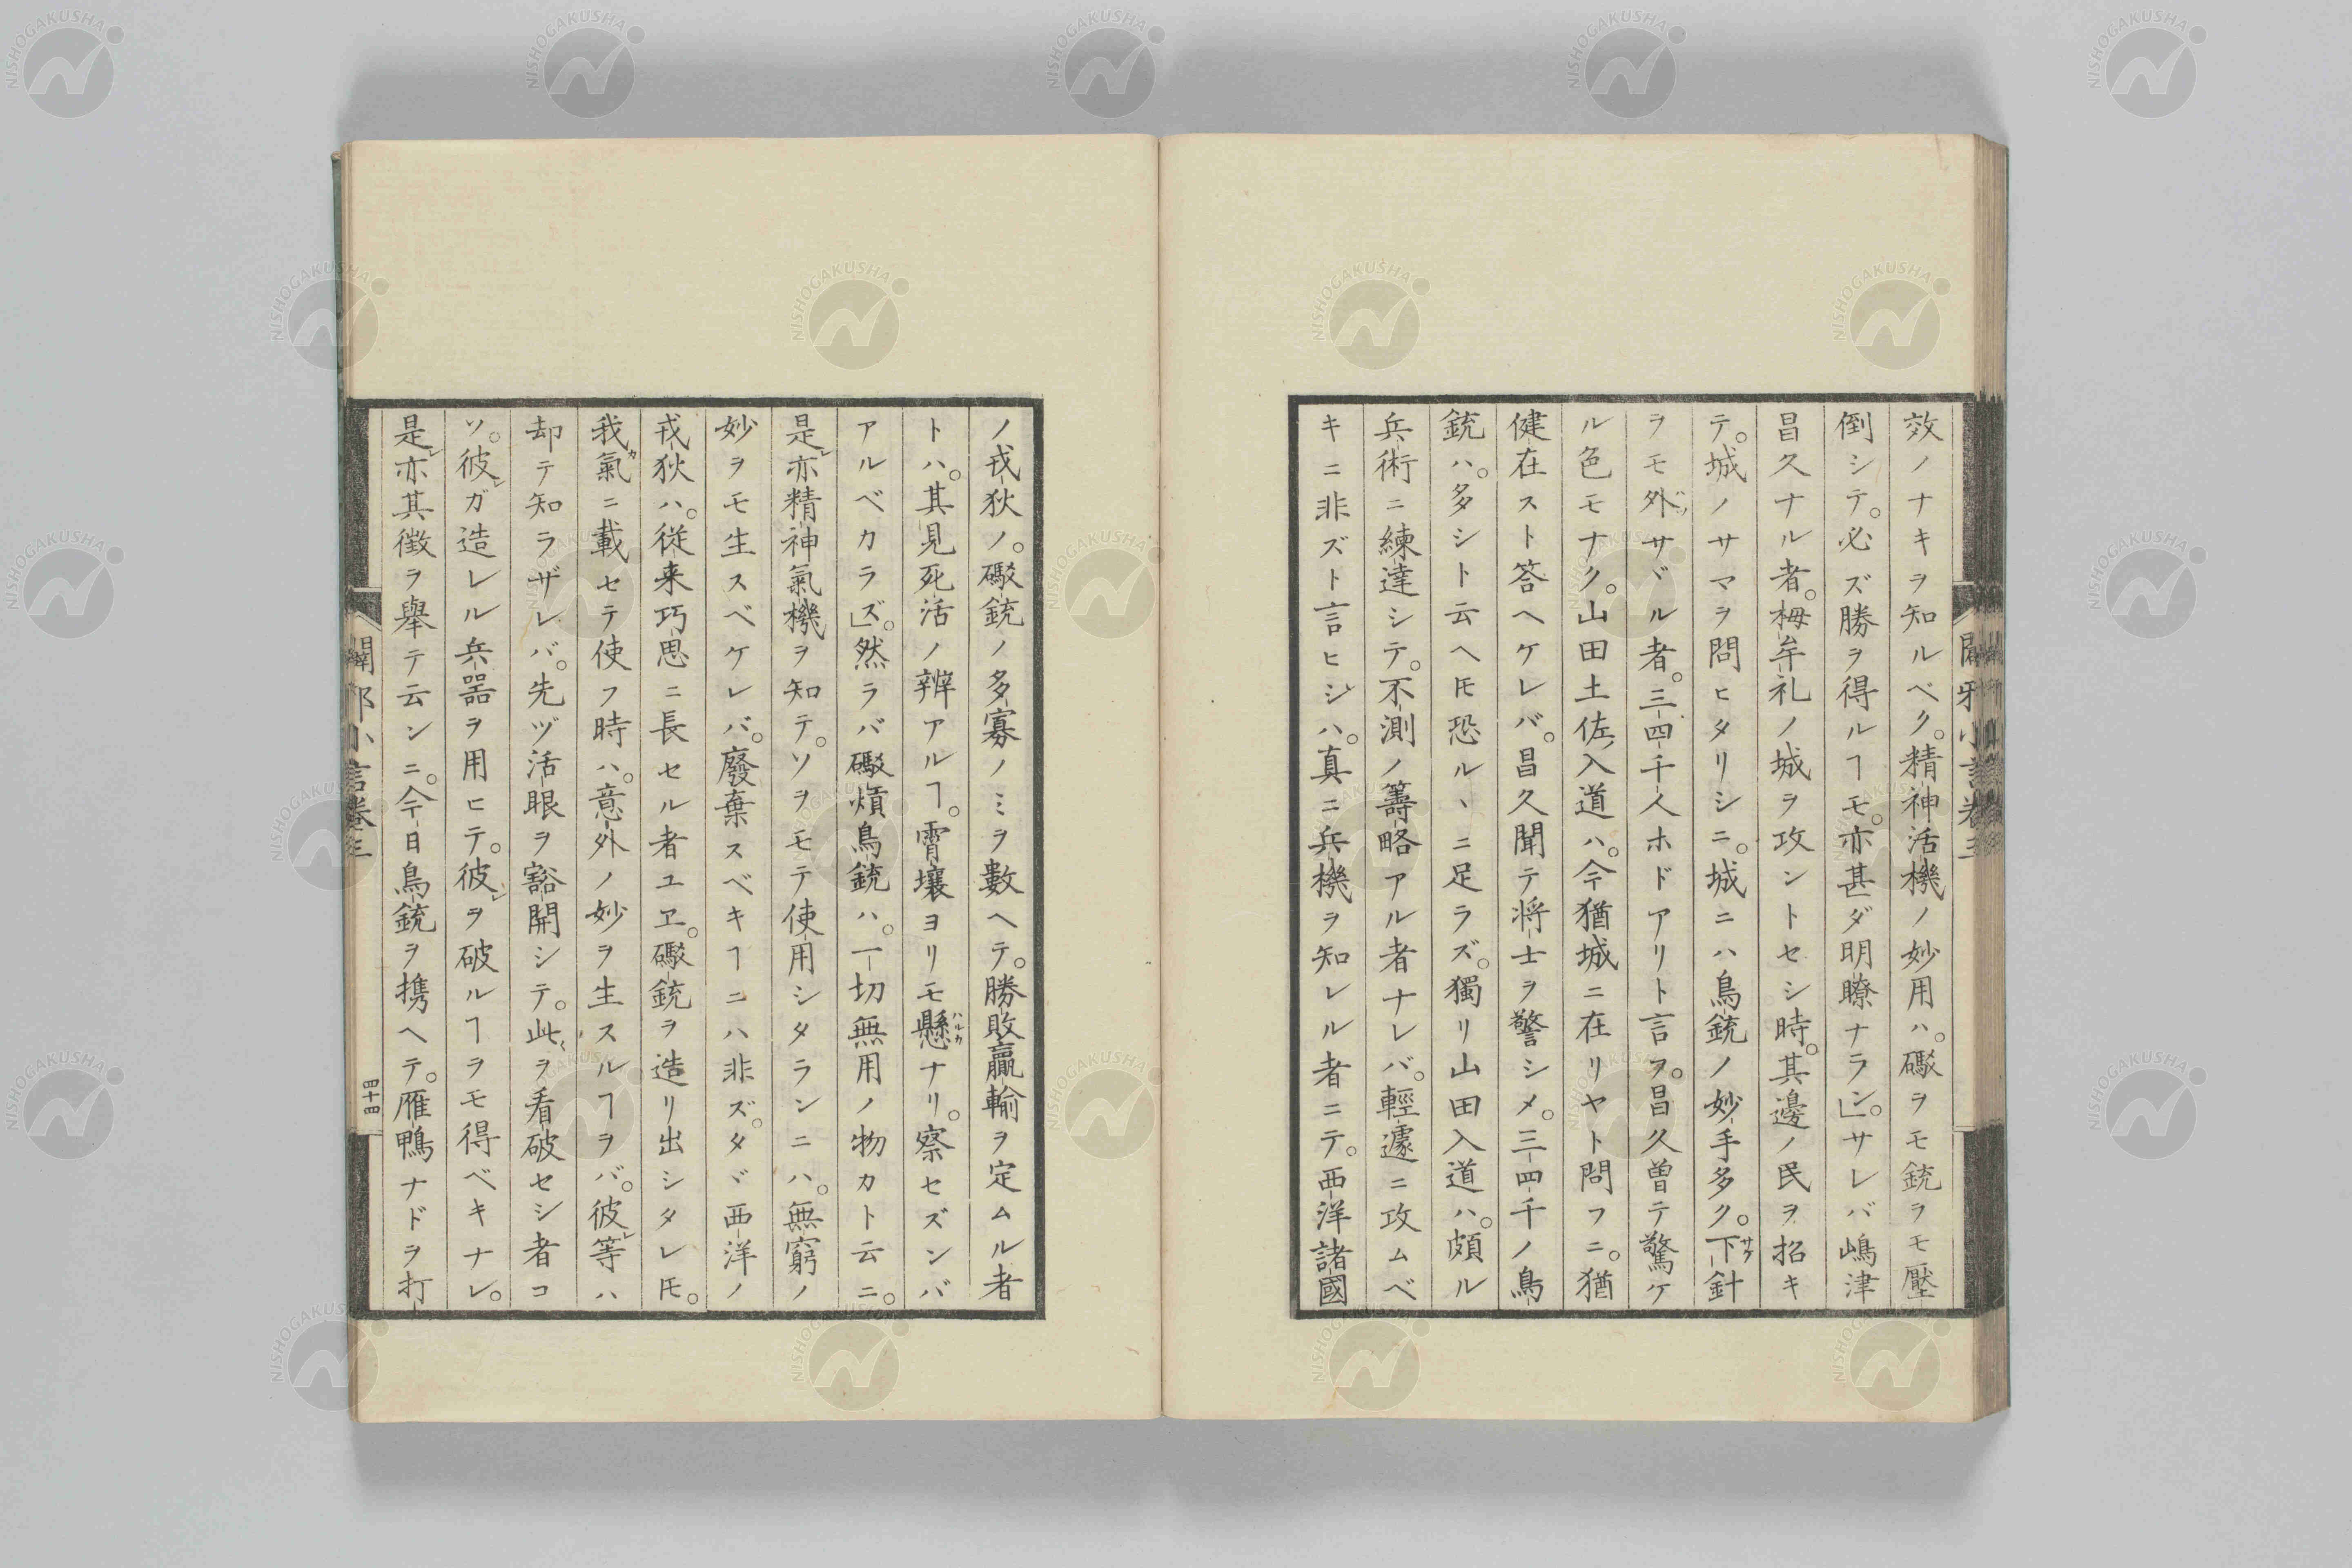 效ノナキヲ知ルベク。精神活機ノ妙用ハ。礮ヲモ銃ヲモ壓
倒シテ。必ズ勝ヲ得ルヿモ。亦甚ダ明瞭ナラン」。サレバ嶋津
昌久ナル者。梅牟礼ノ城ヲ攻ントセシ時。其邊ノ民ヲ招キ
テ。城ノサマヲ問ヒタリシニ。城ニハ鳥銃ノ妙手多ク。下針
ヲモ外サヾル者。三四千人ホドアリト言ヲ。昌久曾テ驚ケ
ル色モナク。山田土佐入道ハ。今猶城ニ在リヤト問フニ。猶
健在スト答ヘケレバ。昌久聞テ将士ヲ警シメ。三四千ノ鳥
銃ハ。多シト云ヘ𪜈恐ルヽニ足ラズ。獨リ山田入道ハ。頗ル
兵術ニ練達シテ。不測ノ籌略アル者ナレバ。輕遽ニ攻ムベ
キニ非ズト言ヒシハ。真ニ兵機ヲ知レル者ニテ。西洋諸國
ノ戎狄ノ。礮銃ノ多寡ノミヲ數ヘテ。勝敗贏輸ヲ定ムル者
トハ。其見死活ノ辨アルヿ。霄壤ヨリモ懸ナリ。察セズンバ
アルベカラズ」。然ラバ礮熕鳥銃ハ。一切無用ノ物カト云ニ。
是亦精神氣機ヲ知テ。ソヲモテ使用シタランニハ。無窮ノ
妙ヲモ生スベケレバ。廢棄スベキヿニハ非ズ。タヾ西洋ノ
戎狄ハ。従来巧思ニ長セル者ユヱ。礮銃ヲ造リ出シタレ𪜈。
我氣ニ載セテ使フ時ハ。意外ノ妙ヲ生スルヿヲバ。彼等ハ
却テ知ラザレバ。先ヅ活眼ヲ豁開シテ。此ヲ看破セシ者コ
ソ。彼ガ造レル兵噐ヲ用ヒテ。彼ヲ破ルヿヲモ得ベキナレ。
是亦其徴ヲ舉テ云ンニ。今日鳥銃ヲ携ヘテ。雁鴨ナドヲ打
闢邪小言卷三
四十四